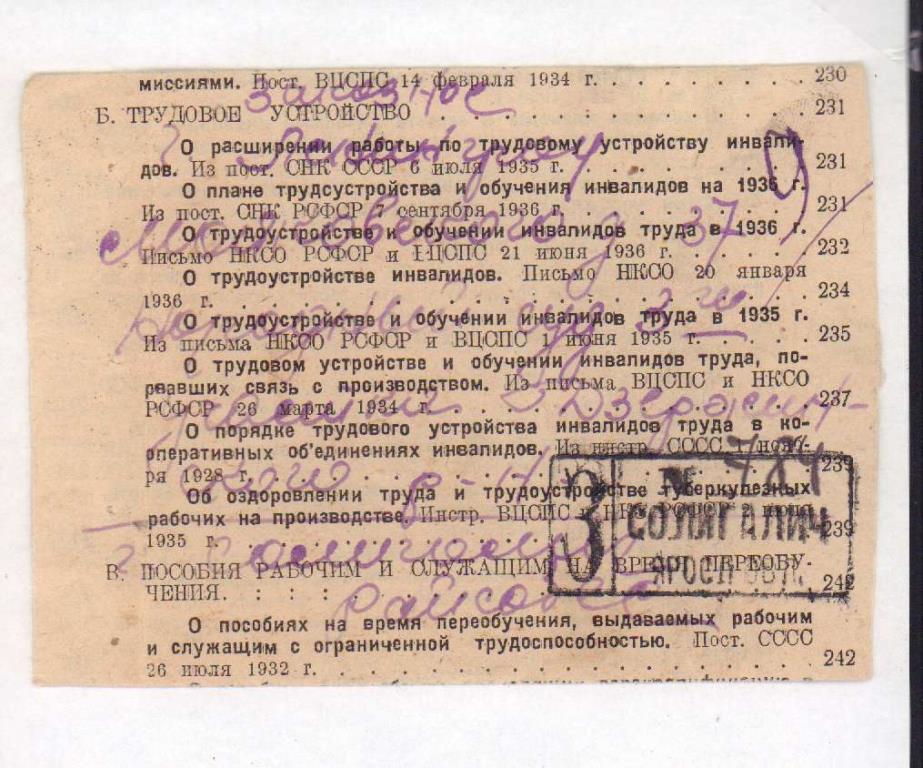 миссиями. Пост. ВЦСПС 14 февраля 1934 г. . . . . . . . 230
заказное
Б. ТРУДОВОЕ УСТРОЙСТВО . . . . . . . . . . . . . 231
г. Ленинград
О расширении работы по трудовому устройству инвали-
дов. Из пост. СНК СССР 6 июля 1935 г. . . . . . . . . 231
О плане трудсустройства и обучения инвалидов на 1936 г.
Из пост. СНК РСФСР 7 сентября 1936 г. . . . . . . . . 231
д 37
О трудоустройстве и обучении инвалидов труда в 1936 г.
Письмо НКСО РСФСР и ВЦСПС 21 июня 1936 г. . . . . . 232
О трудоустройстве инвалидов. Письмо НКСО 20 января
1936 г. . . . . . . . . . . . . . . . . . . . . 234
Народный суд 3 го
О трудоустройстве и обучении инвалидов труда в 1935 г.
Из письма НКСО РСФСР и ВЦСПС 1 июня 1935 г. . . . . 235
О трудовом устройстве и обучении инвалидов труда, по-
рвавших связь с производством. Из письма ВЦСПС и НКСО
РСФСР 26 марта 1934 г. . . . . . . . . . . . . . 237
участка Дзержин-
О порядке трудового устройства инвалидов труда в ко-
оперативных об'единениях инвалидов. Из инстр. СССС 1 нояб-
ря 1928 г. . . . . . . . . . . . . . . . . . . . 239
ского р-на
Об оздоровлении труда и трудоустройстве туберкулезных
рабочих на производстве. Инстр. ВЦСПС и НКС РСФСР 2 июня
1935 г. . . . . . . . . . . . . . . . . . . . . 239
З № 784
СОЛИГАЛИЧ
ЯРОСЛ. ОБЛ.
В. ПОСОБИЯ РАБОЧИМ И СЛУЖАЩИМ НА ВРЕМЯ ПЕРЕОБУ-
ЧЕНИЯ. . . . . . . . . . . . . . . . . . . . . 242
О пособиях на время переобучения, выдаваемых рабочим
и служащим с ограниченной трудоспособностью. Пост. СССС
26 июля 1932 г. . . . . . . . . . . . . . . . . . 242